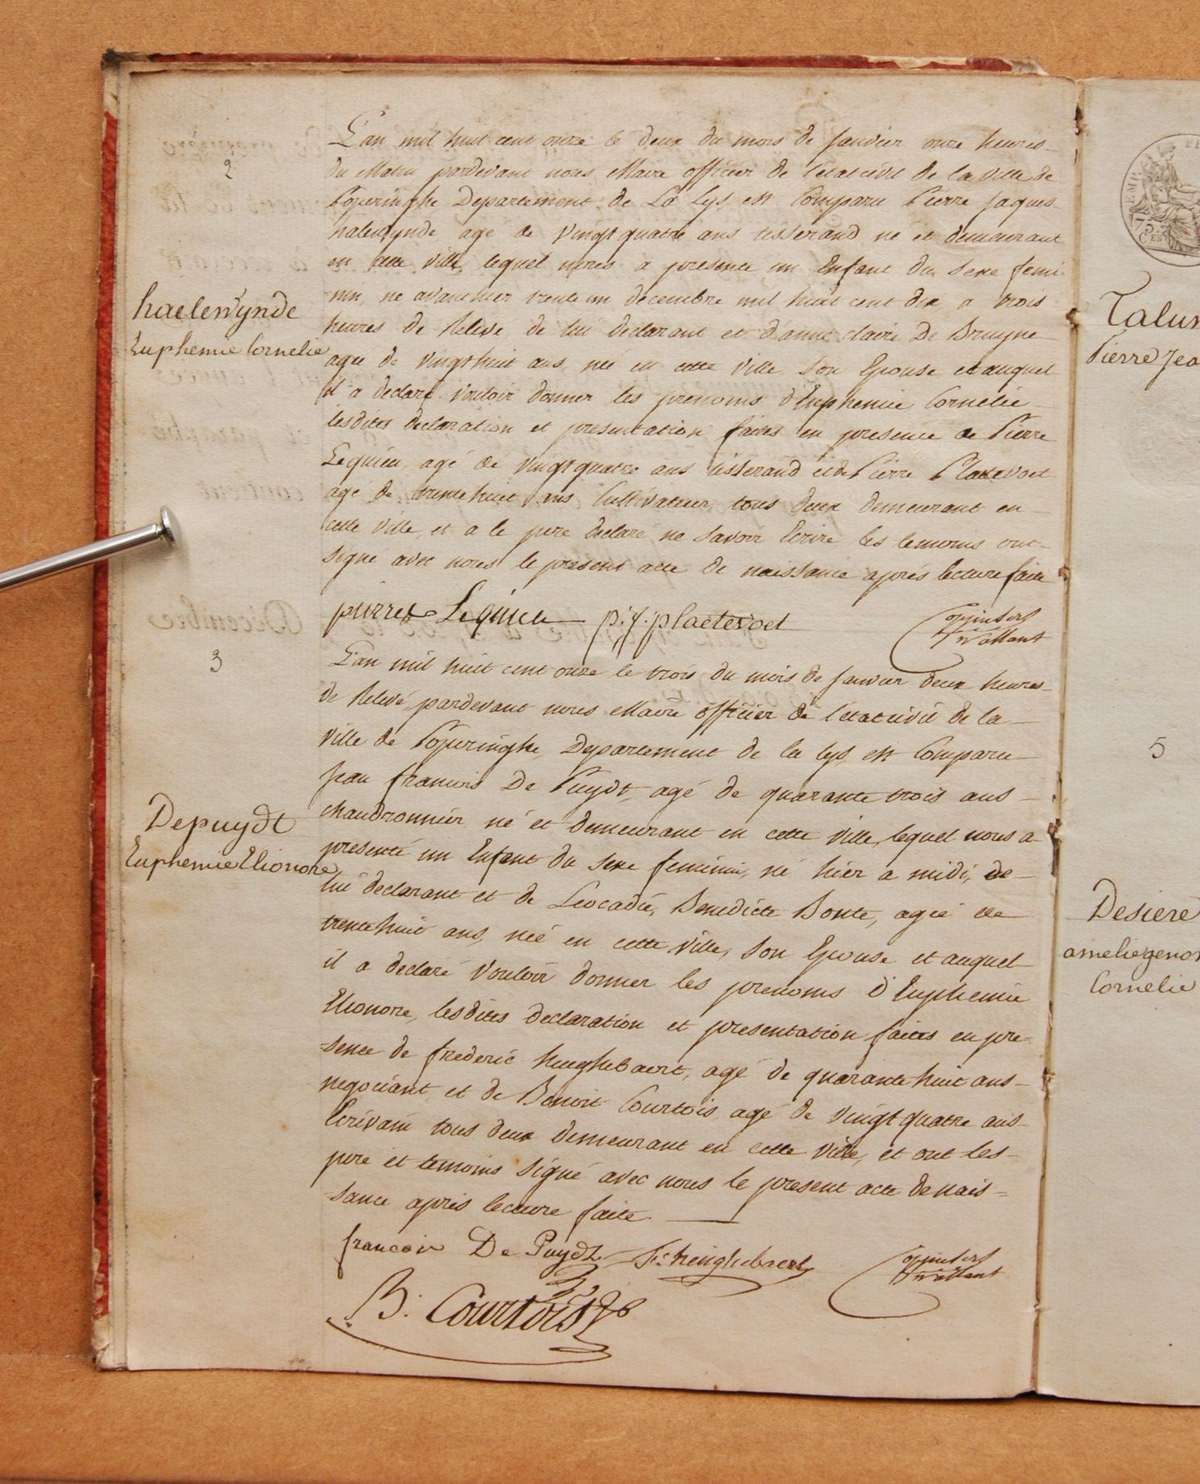 2
L'an mil huit cent onze le deux du mois de Janvier onze heures
du Matin pardevant nous Maire officier de l'etat civil de la ville de
Poperinghe Departement de La Lys est Comparu Pierre Jaques
halewynde agé de vingt quatre ans tisserand né et demeurant
en cette ville, lequel nous a presenté un Enfant du sexe femi
nin, né avant hier trente un decembre mil huit cent dix, a trois
heures de Relevé de lui declarant et d'anne claire De Bruyne
agée de vingthuit ans, née en cette ville son Epouse et auquel
il a declaré vouloir donner les prenoms d'Euphemie Cornelie
lesdites declaration et presentation faites en presence de Pierre
Lequieu, agé de vingt quatre ans tisserand et de Pierre Plaetevoet
agé de trentehuit ans Cultivateur, tous deux demeurant en
cette ville, et a le pere declaré ne savoir Ecrire les temoins ont
signé avec nous le present acte de naissance après lecture faite
haelewynde
Euphemie Cornelie
pierre Lequieu p:j:plaetevoet
3
L'an mil huit cent onze le trois du mois de Janvier deux heures
de Relevé, pardevant nous Maire officier de l'etat civil de la
ville de Poperinghe, Departement de la lys est Comparu
Jean francois De Puydt, agé de quarante trois ans
chaudronnier né et demeurant en cette ville, lequel nous a
presenté un Enfant du sexe feminin, né hier a midi, de
lui declarant et de Leocadie, Benedicte Bonte, agée de
trentehuit ans, née en cette ville, son Epouse et auquel
il a declaré vouloir donner les prenoms d'Euphemie
Elionore, lesdites declaration et presentation faites en pre
sence de frederic hueghebaert, agé de quarante huit ans
negociant, et de Benoit Courtois agé de vingt quatre ans
Ecrivain tous deux demeurant en cette ville, et ont les
pere et temoins signé avec nous le present acte de nais=
sance après lecture faite
Depuydt
Euphemie Elionore
francois De Puydt
B: Courtois
5
Pierre Jea
Desiere
Cornelie